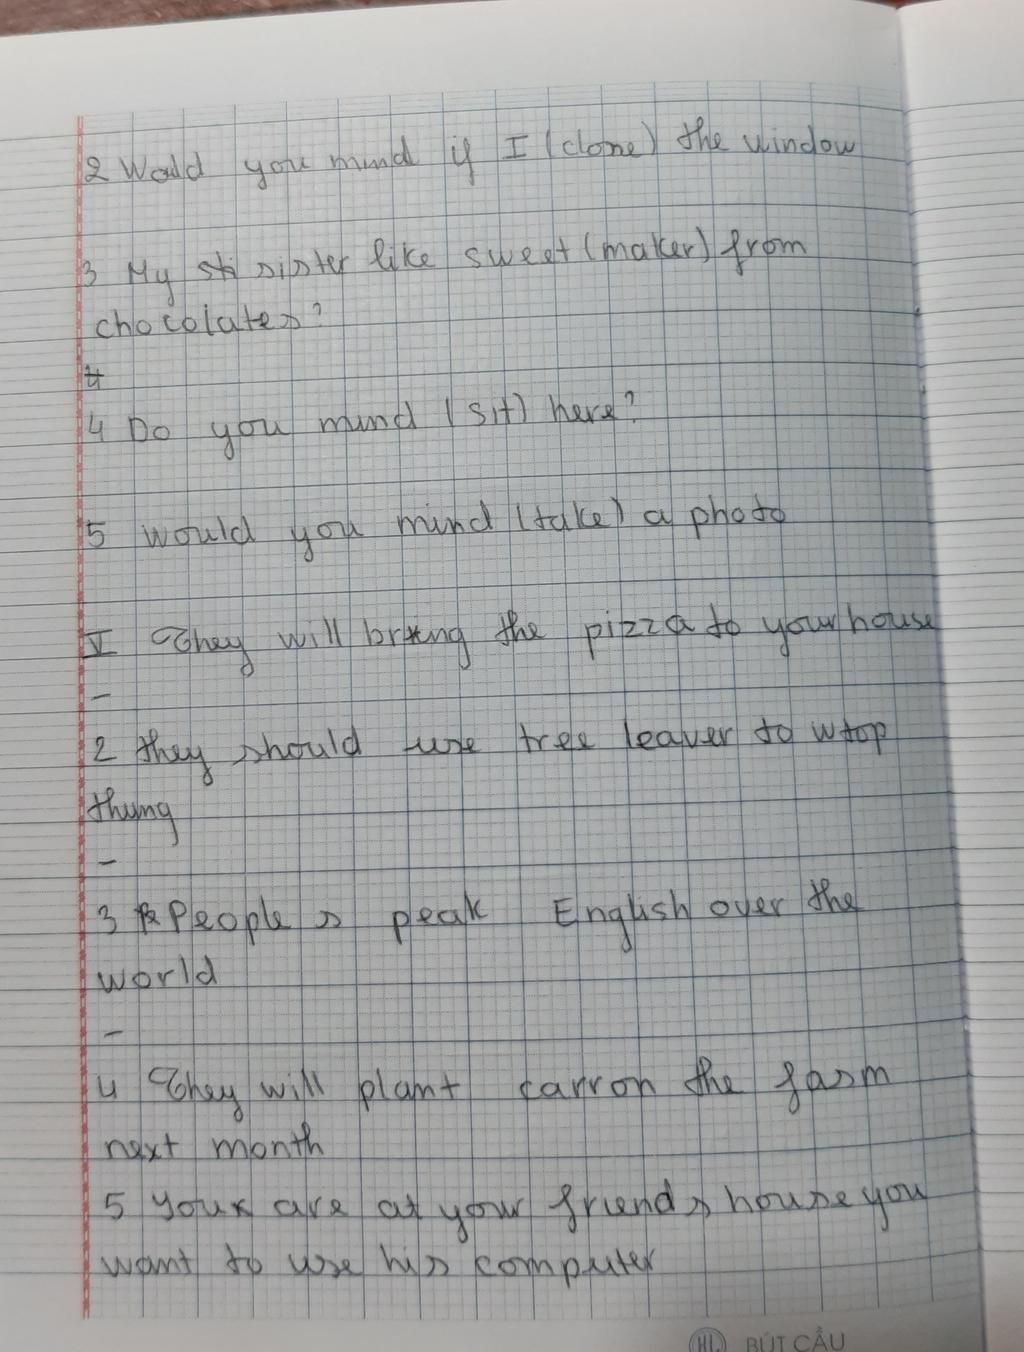 2 Would you mind if I (clone) the window
3 My sister like sweet (maker) from
chocolates?
4 Do you mind (sit) here?
5 would you mind (take) a photo
V They will bring the pizza to your house
-
2 they should use tree leaver to wtop
thung
-
3 People s peak English over the
world
-
4 They will plant carron the farm
next month
5 you are at your friend s house you
want to use his computer
HL BÚT CẦU